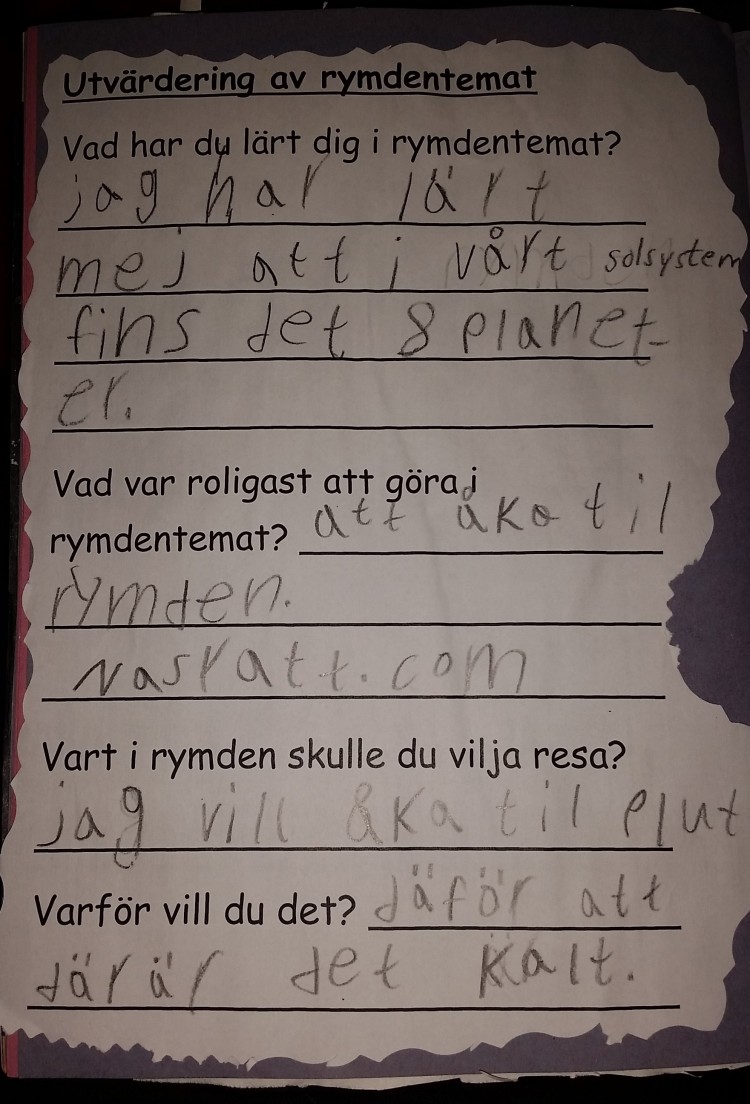 Utvärdering av rymdentemat
Vad har du lärt dig i rymdentemat?
jag har lärt
mej att i vårt solsystem
fins det 8 planet-
er.
Vad var roligast att göra i
rymdentemat? att åka til
rymden.
Nasratt.com
Vart i rymden skulle du vilja resa?
jag vill åka til plut
Varför vill du det? däför att
där är det kalt.